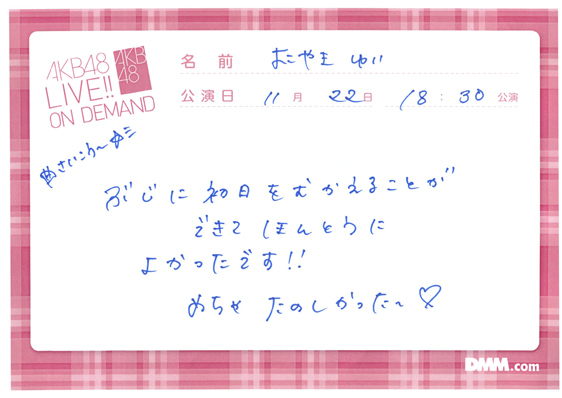 AKB48
LIVE!!
ON DEMAND
AKB
48
名前 よこやま ゆい
公演日 11月 22日 18:30 公演
さいこう〜
ぶじに初日をむかえることが
できて ほんとうに
よかったです!!
めちゃ たのしかった〜♡
DMM.com